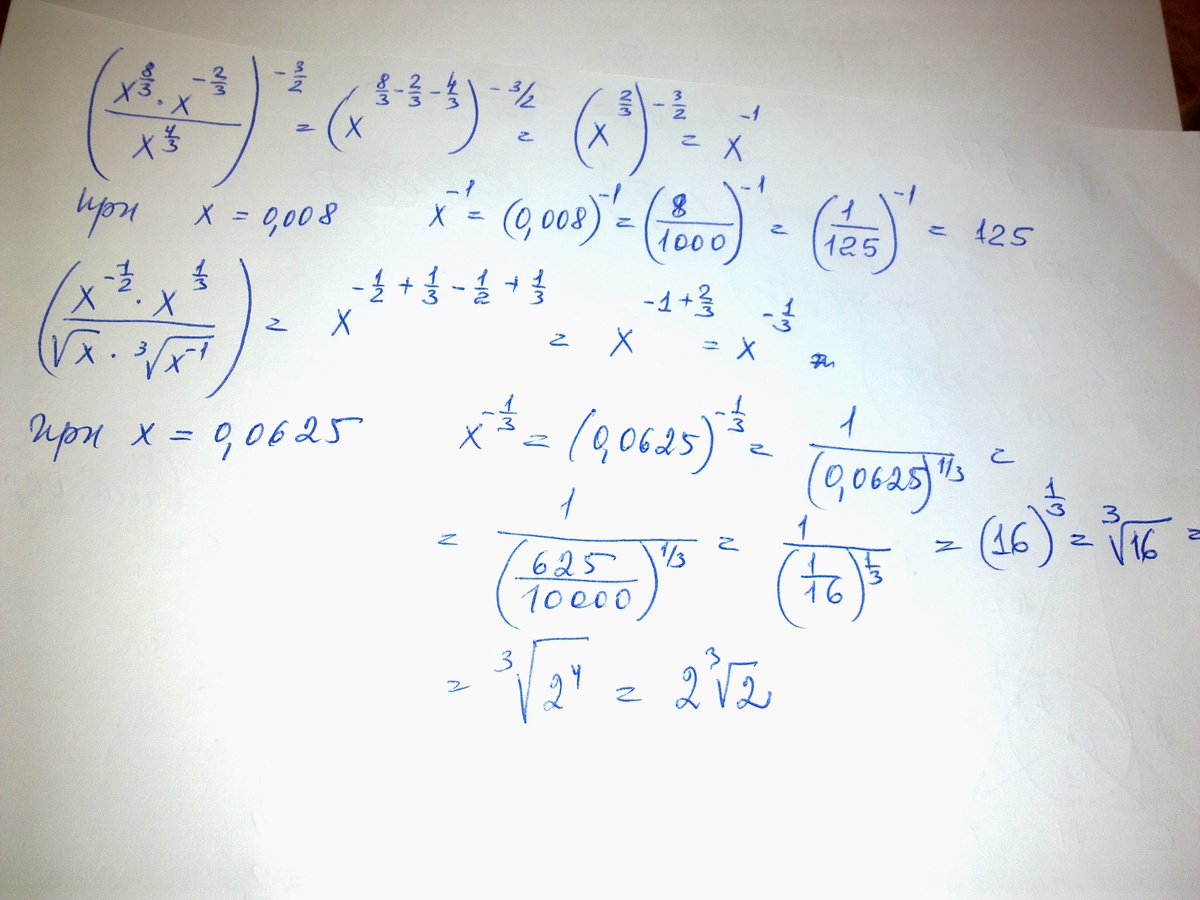 (x^(8/3) · x^(-2/3) / x^(4/3))^(-3/2) = (x^(8/3 - 2/3 - 4/3))^(-3/2) = (x^(2/3))^(-3/2) = x^(-1)
при x = 0,008 x^(-1) = (0,008)^(-1) = (8/1000)^(-1) = (1/125)^(-1) = 125
(x^(-1/2) · x^(1/3) / √x · ³√x^(-1)) = x^(-1/2 + 1/3 - 1/2 + 1/3) = x^(-1 + 2/3) = x^(-1/3)
при x = 0,0625 x^(-1/3) = (0,0625)^(-1/3) = 1/(0,0625)^(1/3) =
= 1/(625/10000)^(1/3) = 1/(1/16)^(1/3) = (16)^(1/3) = ³√16 =
= ³√2^4 = 2 ³√2